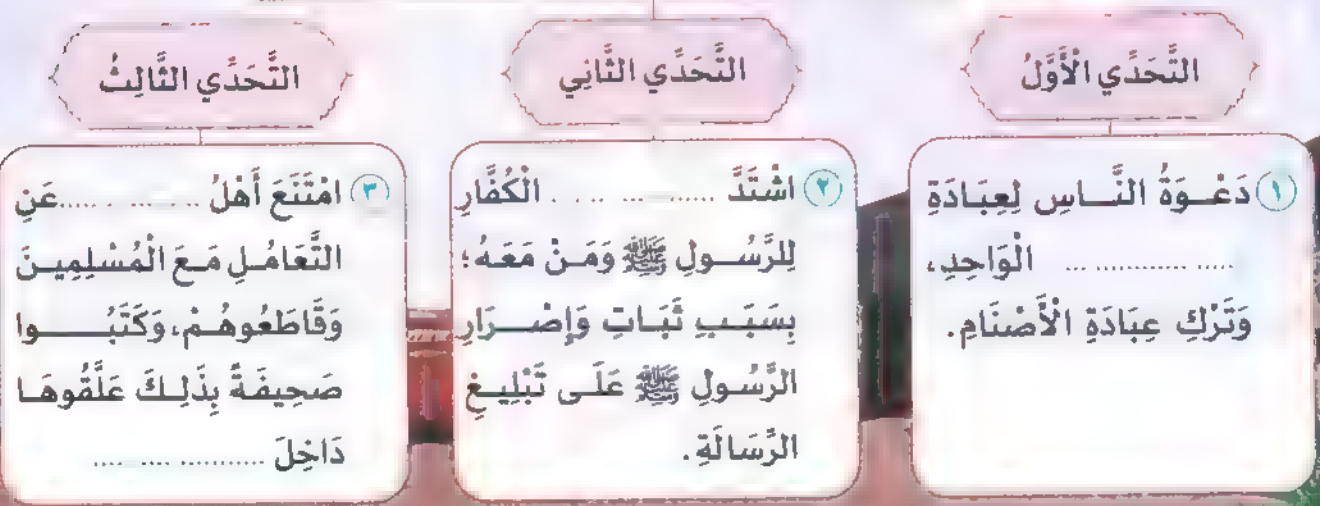 التَّحَدِّي الْأَوَّلُ
١ دَعْوَةُ النَّاسِ لِعِبَادَةِ
............... الْوَاحِدِ،
وَتَرْكِ عِبَادَةِ الْأَصْنَامِ.
التَّحَدِّي الثَّانِي
٢ اشْتَدَّ ............... الْكُفَّارِ
لِلرَّسُولِ ﷺ وَمَنْ مَعَهُ؛
بِسَبَبِ ثَبَاتِ وَإِصْرَارِ
الرَّسُولِ ﷺ عَلَى تَبْلِيغِ
الرِّسَالَةِ.
التَّحَدِّي الثَّالِثُ
٣ امْتَنَعَ أَهْلُ ............... عَنِ
التَّعَامُلِ مَعَ الْمُسْلِمِينَ
وَقَاطَعُوهُمْ، وَكَتَبُوا
صَحِيفَةً بِذَلِكَ عَلَّقُوهَا
دَاخِلَ ...............